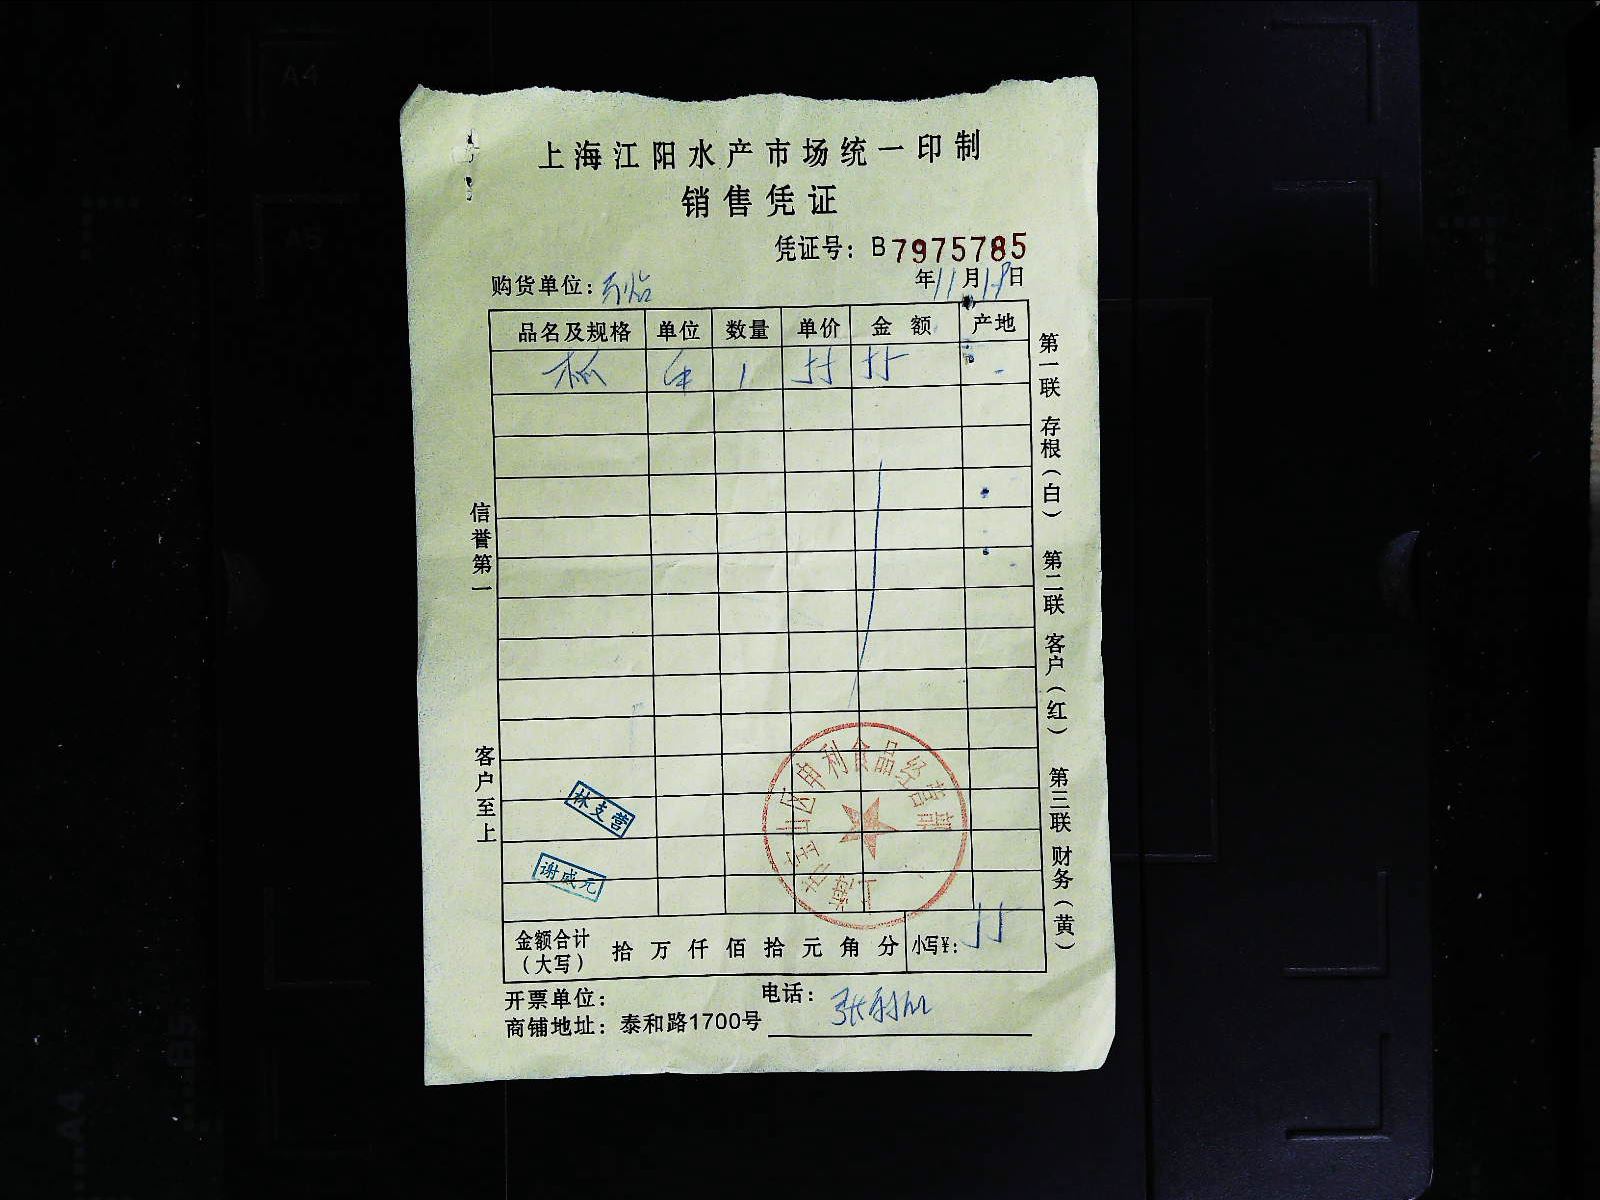 上海江阳水产市场统一印制
销售凭证
凭证号：B7975785
购货单位：
年11月19日
品名及规格 单位 数量 单价 金额 产地
1 55 55
信誉第一
客户至上
第一联 存根（白） 第二联 客户（红） 第三联 财务（黄）
林支营
谢咸元
上海市宝山区申利食品经营部
金额合计（大写） 拾 万 仟 佰 拾 元 角 分 小写¥：55
开票单位： 电话：
商铺地址：泰和路1700号
A4
A5